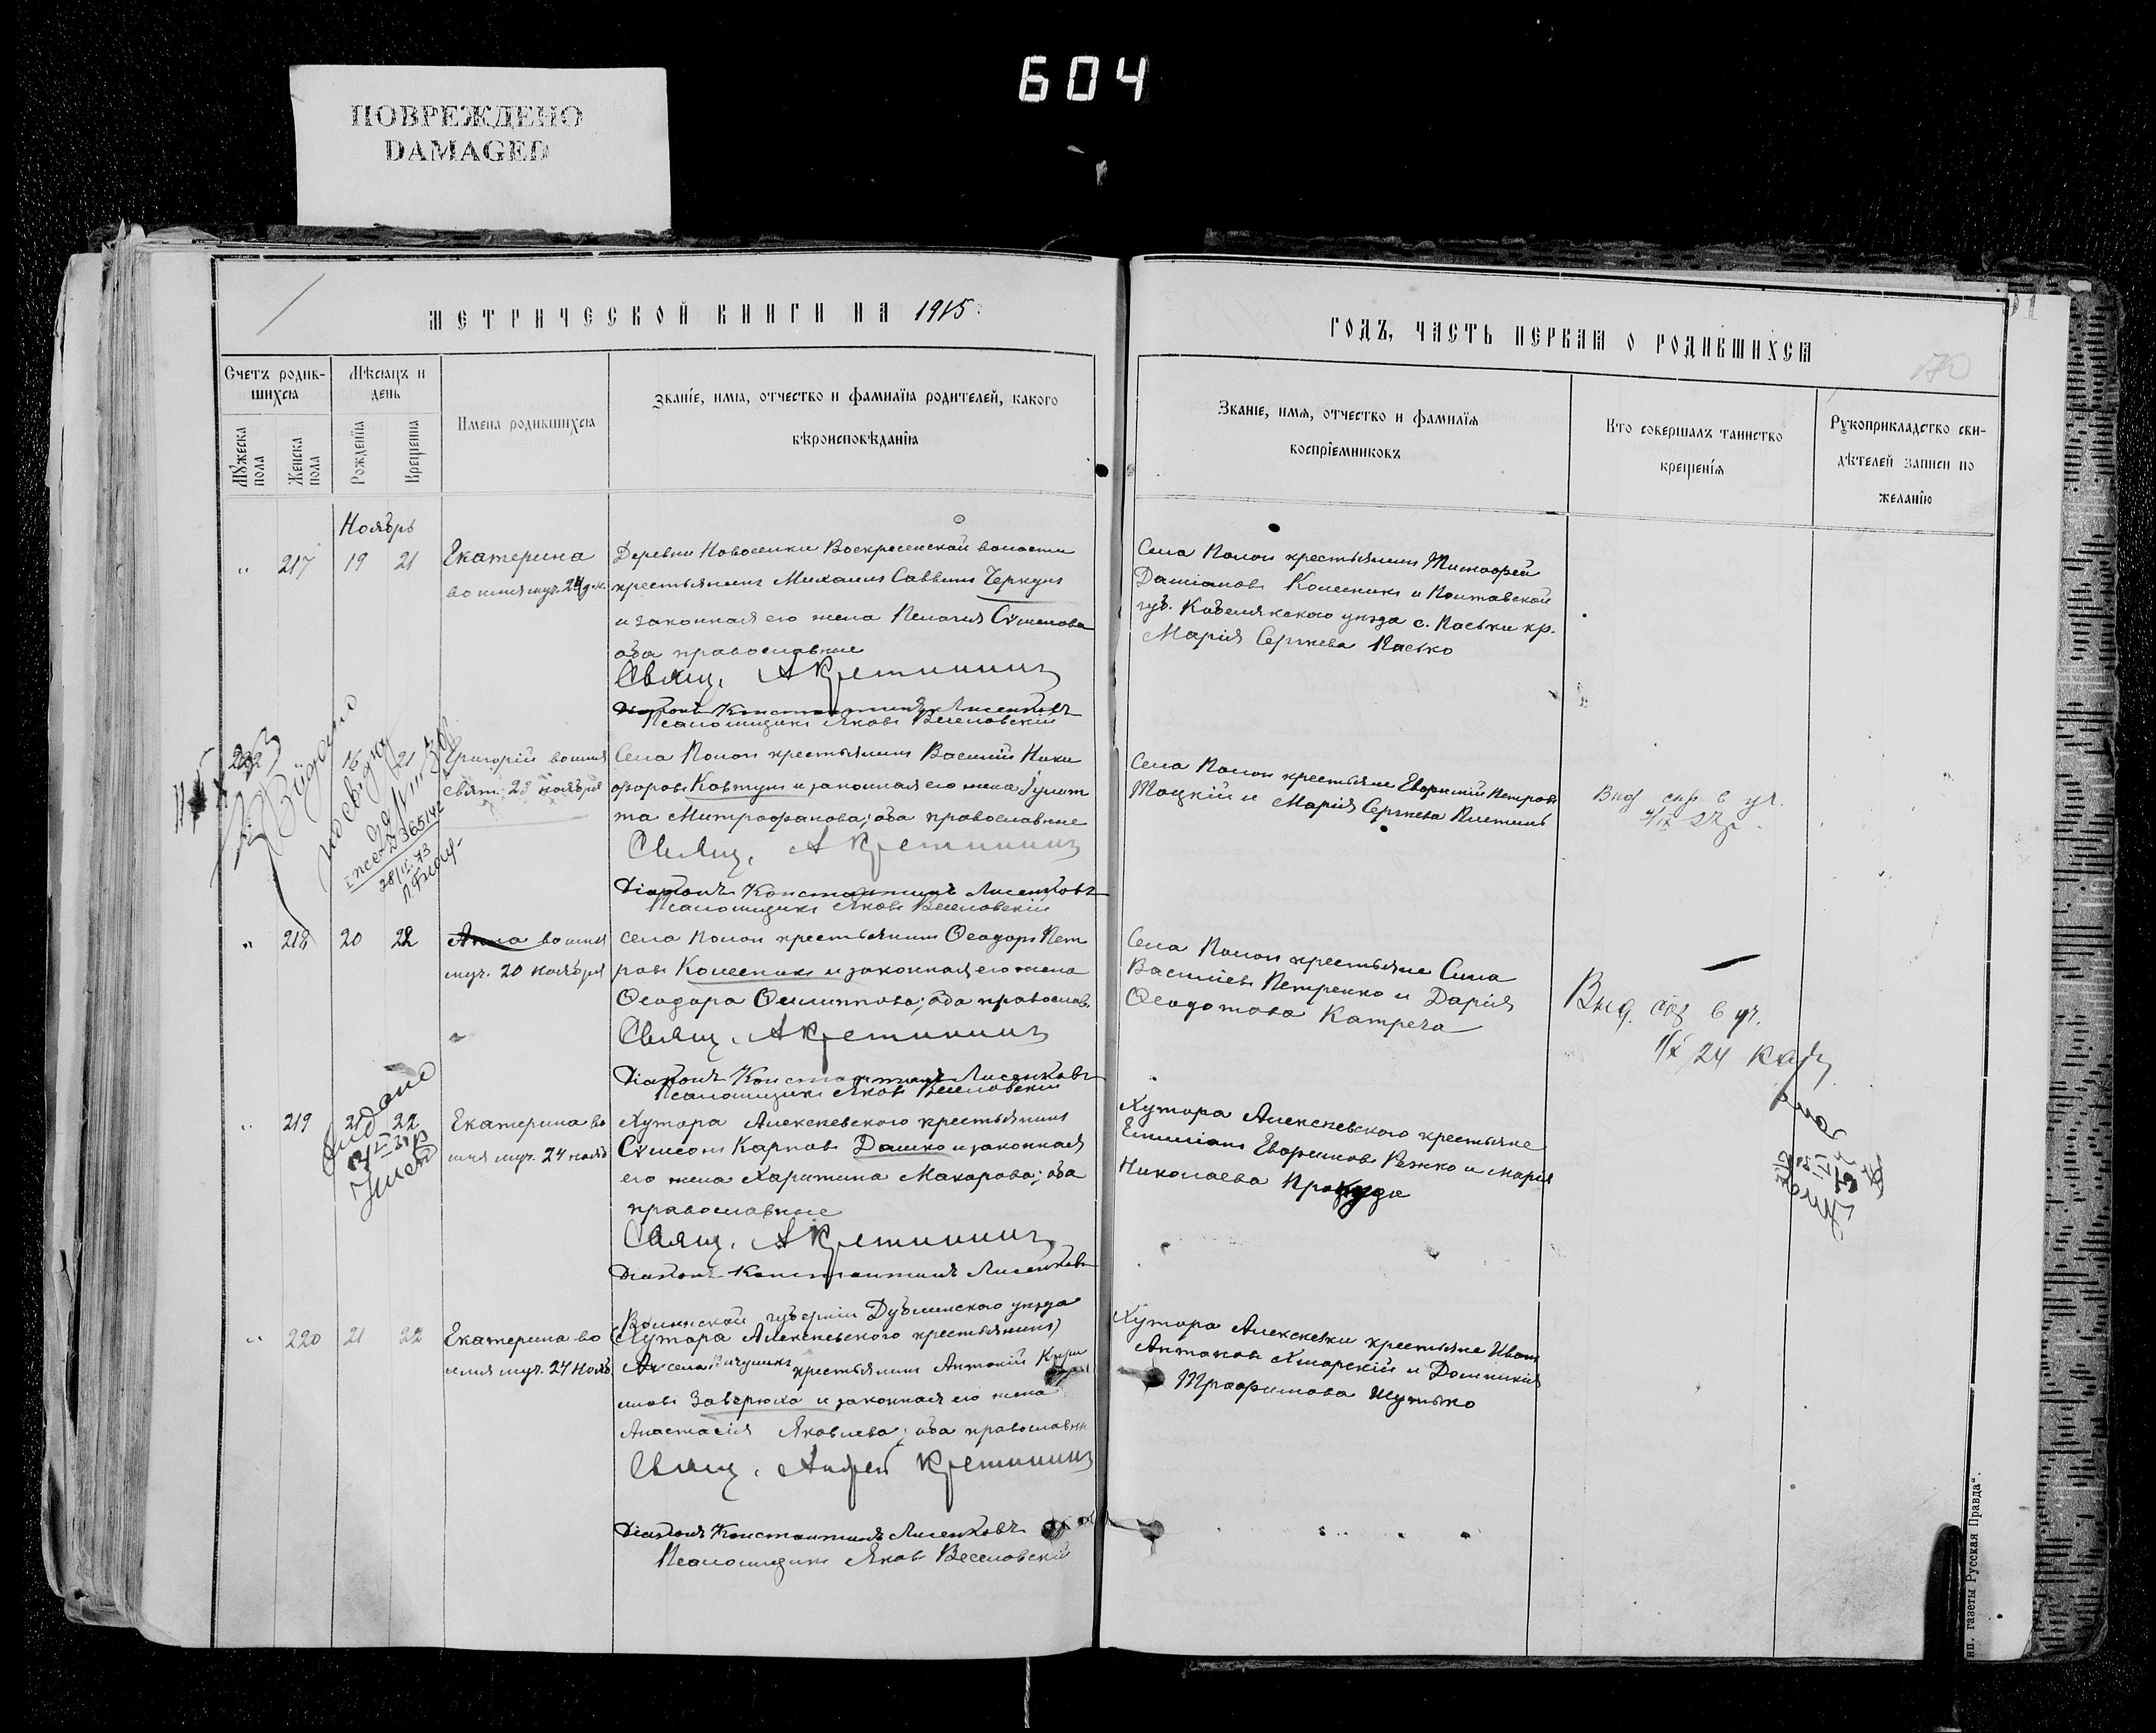 604
ПОВРЕЖДЕНО
DAMAGED
МЕТРИЧЕСКОЙ КНИГИ НА 1915
ГОДЪ, ЧАСТЬ ПЕРВАЯ О РОДИВШИХСЯ
Счетъ родив-
шихся
Мѣсяцъ и
день
Мужеска
пола
Женска
пола
Рожденїя
Крещенїя
Имена родившихся
Званїе, имя, отчество и фамилїя родителей, какого
вѣроисповѣданїя
Званїе, имя, отчество и фамилїя
воспрїемниковъ
Кто совершалъ таинство
крещенїя
Рукоприкладство сви-
дѣтелей записи по
желанїю
Ноябрь
217 19 21 Екатерина
во имя муч. 24
Деревни Новоселки Воскресенской волости
крестьянинъ Михаилъ Саввинъ Черкунъ
и законная его жена Пелагия Сѵмеонова
оба православные
Свящ. А Кретининъ
Діаконъ Константинъ Лисенковъ
Псаломщикъ Яковъ Веселовскій
Села Полои крестьянинъ Тимофей
Даміановъ Колесникъ и Полтавской
губ. Кобелякского уѣзда с. Паськи кр.
Марія Сергѣева Пасько
16 21 Григорій во имя
свят. 23 ноября
Села Полои крестьянинъ Василій Ники
форовъ Ковтунъ и законная его жена Гулит
та Митрофанова; оба православные
Свящ. А Кретининъ
Діаконъ Константинъ Лисенковъ
Псаломщикъ Яковъ Веселовскій
Села Полои крестьяне Евфимій Петровъ
Тоцкій и Марія Сергѣева
218 20 22 Анна во имя
муч. 20 ноября
села Полои крестьянинъ Ѳеодоръ Пет
ровъ Колесникъ и законная его жена
Ѳеодора Филиппова; оба православ.
Свящ. А Кретининъ
Діаконъ Константинъ Лисенковъ
Псаломщикъ Яковъ Веселовскій
Села Полои крестьяне Сила
Василіевъ Петренко и Дарія
Ѳеодотова Катреча
219 21 22 Екатерина во
имя муч. 24 нояб
Хутора Алексѣевского крестьянинъ
Сѵмеонъ Карповъ Дашко и законная
его жена Харитина Макарова; оба
православные
Свящ. А Кретининъ
Діаконъ Константинъ Лисенковъ
Хутора Алексѣевского крестьяне
Емиліанъ Евфимовъ Режко и Марія
Николаева
220 21 22 Екатерина во
имя муч. 24 нояб
Волынской губерніи Дубненского уѣзда
(Хутора Алексѣевского крестьянинъ)
крестьянинъ Антоній Кири
ловъ Заверюха и законная его жена
Анастасія Яковлева; оба православн
Свящ. Андрей Кретининъ
Діаконъ Константинъ Лисенковъ
Псаломщикъ Яковъ Веселовскій
Хутора Алексѣевки крестьяне Иванъ
Антоновъ Хмарскій и Домникія
Трофимова Шутько
ип. газеты Русская Правда“.